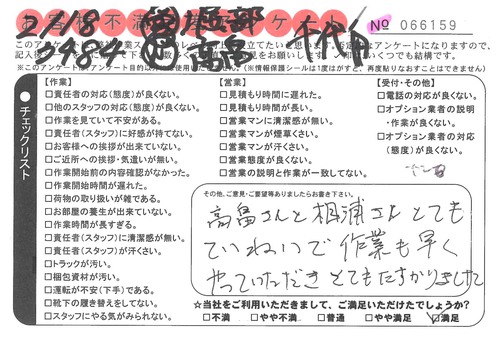 No 066159
21/18
3484
千代田
ご記入
※このアンケートは、アンケート目的以外
(※情報保護シールは1度はがすと、再度貼りなおすことはできません)
チェックリスト
【作業】
□責任者の対応(態度)が良くない。
□他のスタッフの対応(態度)が良くない。
□作業を見ていて不安がある。
□責任者(スタッフ)に好感が持てない。
□お客様への挨拶が出来ていない。
□ご近所への挨拶・気遣いが無い。
□作業開始前の内容確認がなかった。
□作業開始時間が遅れた。
□荷物の取り扱いが雑である。
□お部屋の養生が出来ていない。
□作業時間が長すぎる。
□責任者(スタッフ)に清潔感が無い。
□責任者(スタッフ)が汗くさい。
□トラックが汚い。
□梱包資材が汚い。
□運転が不安(下手)である。
□靴下の履き替えをしてない。
□スタッフにやる気がみられない。
【営業】
□見積もり時間に遅れた。
□見積もり時間が長い。
□営業マンに清潔感が無い。
□営業マンが煙草くさい。
□営業マンが汗くさい。
□営業態度が良くない。
□営業の説明と作業が一致してない。
【受付・その他】
□電話の対応が良くない。
□オプション業者の説明・作業が良くない。
□オプション業者の対応(態度)が良くない。
その他、ご意見・ご要望等ありましたらお書き下さい。
高畠さんと相浦さんとても
ていねいで作業も早く
やっていただきとてもたすかりました
☆当社をご利用いただきまして、ご満足いただけたでしょうか?
□不満 □やや不満 □普通 □やや満足 ☑満足